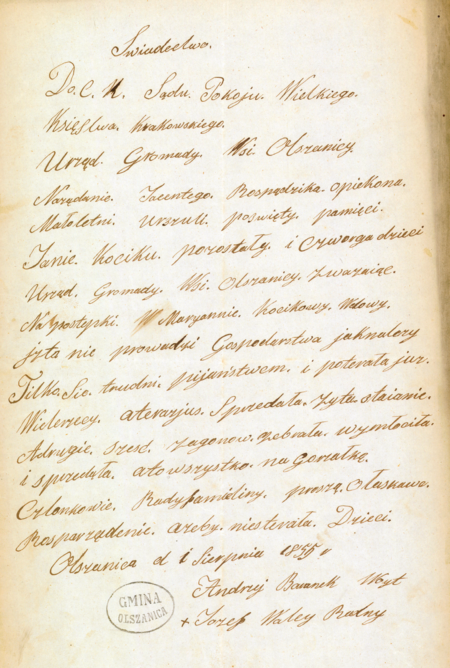 Swiadectwo.
Do. C. K. Sądu. Pokoju. Wielkiego.
Księstwa. Krakowskiego.
Urząd. Gromady. Wsi Olszanicy.
Narządanie. Jacentego. Rospędzika. opiekona.
Małoletni. Urszuli. poświęty. pamięci.
Janie. Kociku. pozostały. i czworga dzieci
Urząd. Gromady. Wsi. Olszanicy. zwazaiąc.
Na Prostępki. W Maryannie. Kocikowy. Wdowy.
iżta nie prowadzi Gospodarstwa jaknalezy
Tilko. Sie. trudni. pijaństwem. i poterała juz.
Wielerzecy. aterazjus. Sprzedała. zyta. staianie.
Adrugie. szesć. zagonow. zebrała. wymłociła.
i sprzedała. ato wszystko. na Gorzałkę.
Członkowie. Rady familiny. proszą. Ołaskawe.
Rosparządzenie. azeby. niesterała. Dzieci.
Olszanica d 1 Sierpnia 1855 r
Andrzej Baranek Woyt
+ Jozef Waley Radny
GMINA
OLSZANICA